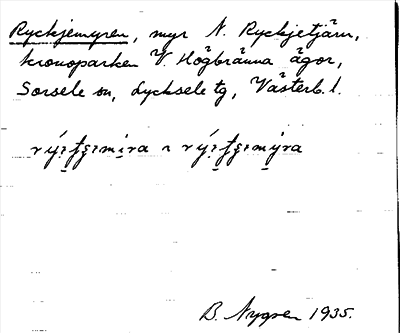 Ryckjemyren, myr N. Ryckjetjärn,
kronoparken V. Högbränna ägor,
Sorsele sn, Lycksele tg, Västerb. l.
B. Nygren 1935.